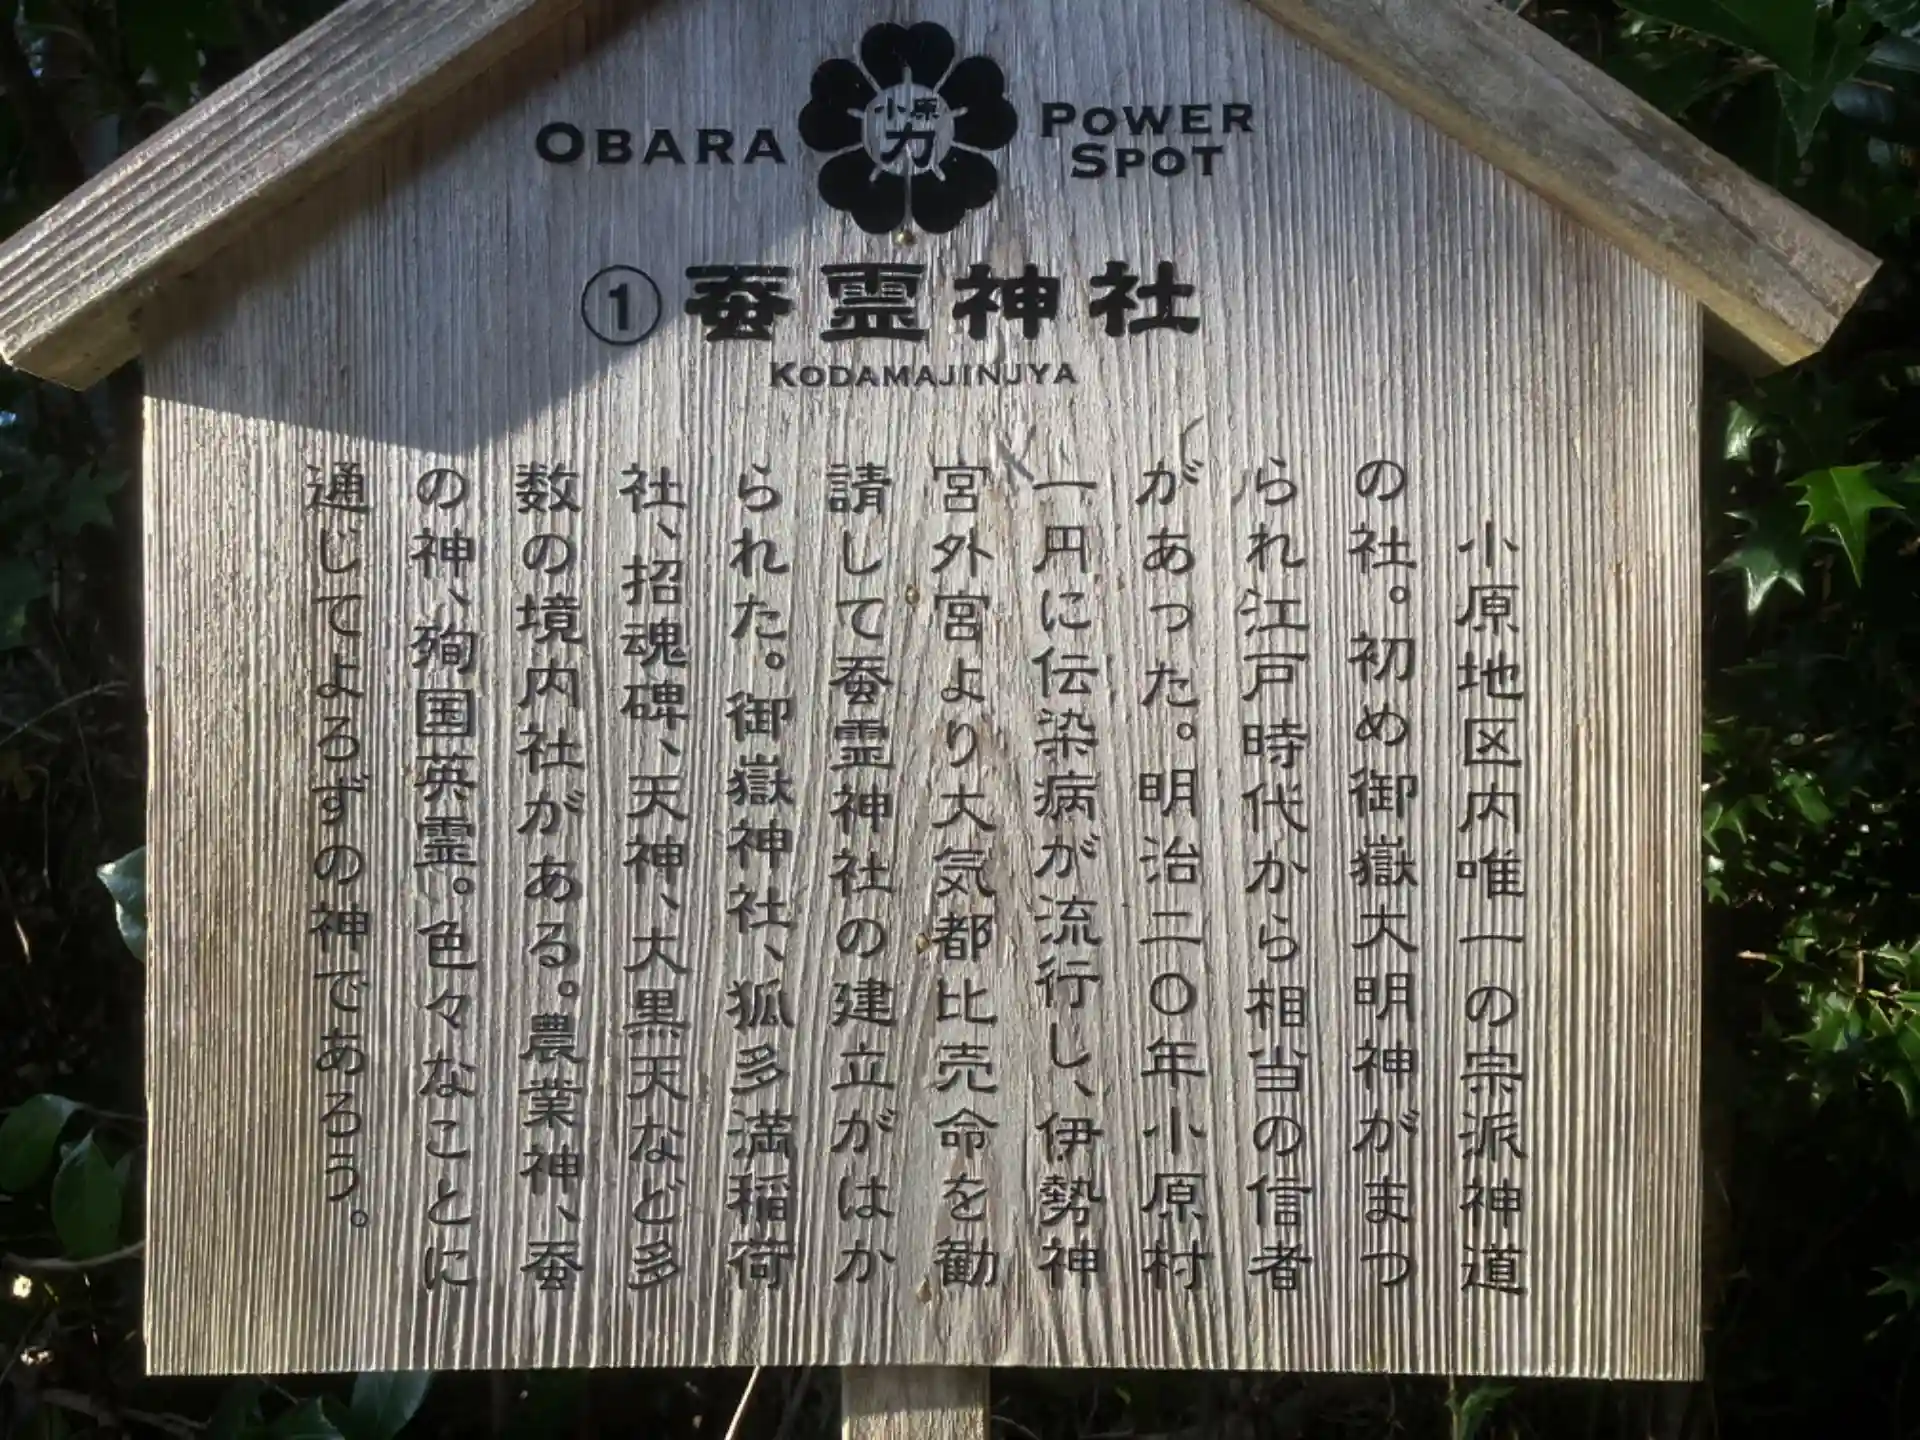 OBARA
小原
力
POWER
SPOT
① 蚕霊神社
KODAMAJINJYA
小原地区内唯一の宗派神道
の社。初め御嶽大明神がまつ
られ江戸時代から相当の信者
があった。明治二〇年小原村
一円に伝染病が流行し、伊勢神
宮外宮より大気都比売命を勧
請して蚕霊神社の建立がはか
られた。御嶽神社、狐多満稲荷
社、招魂碑、天神、大黒天など多
数の境内社がある。農業神、蚕
の神、殉国英霊。色々なことに
通じてよろずの神であろう。